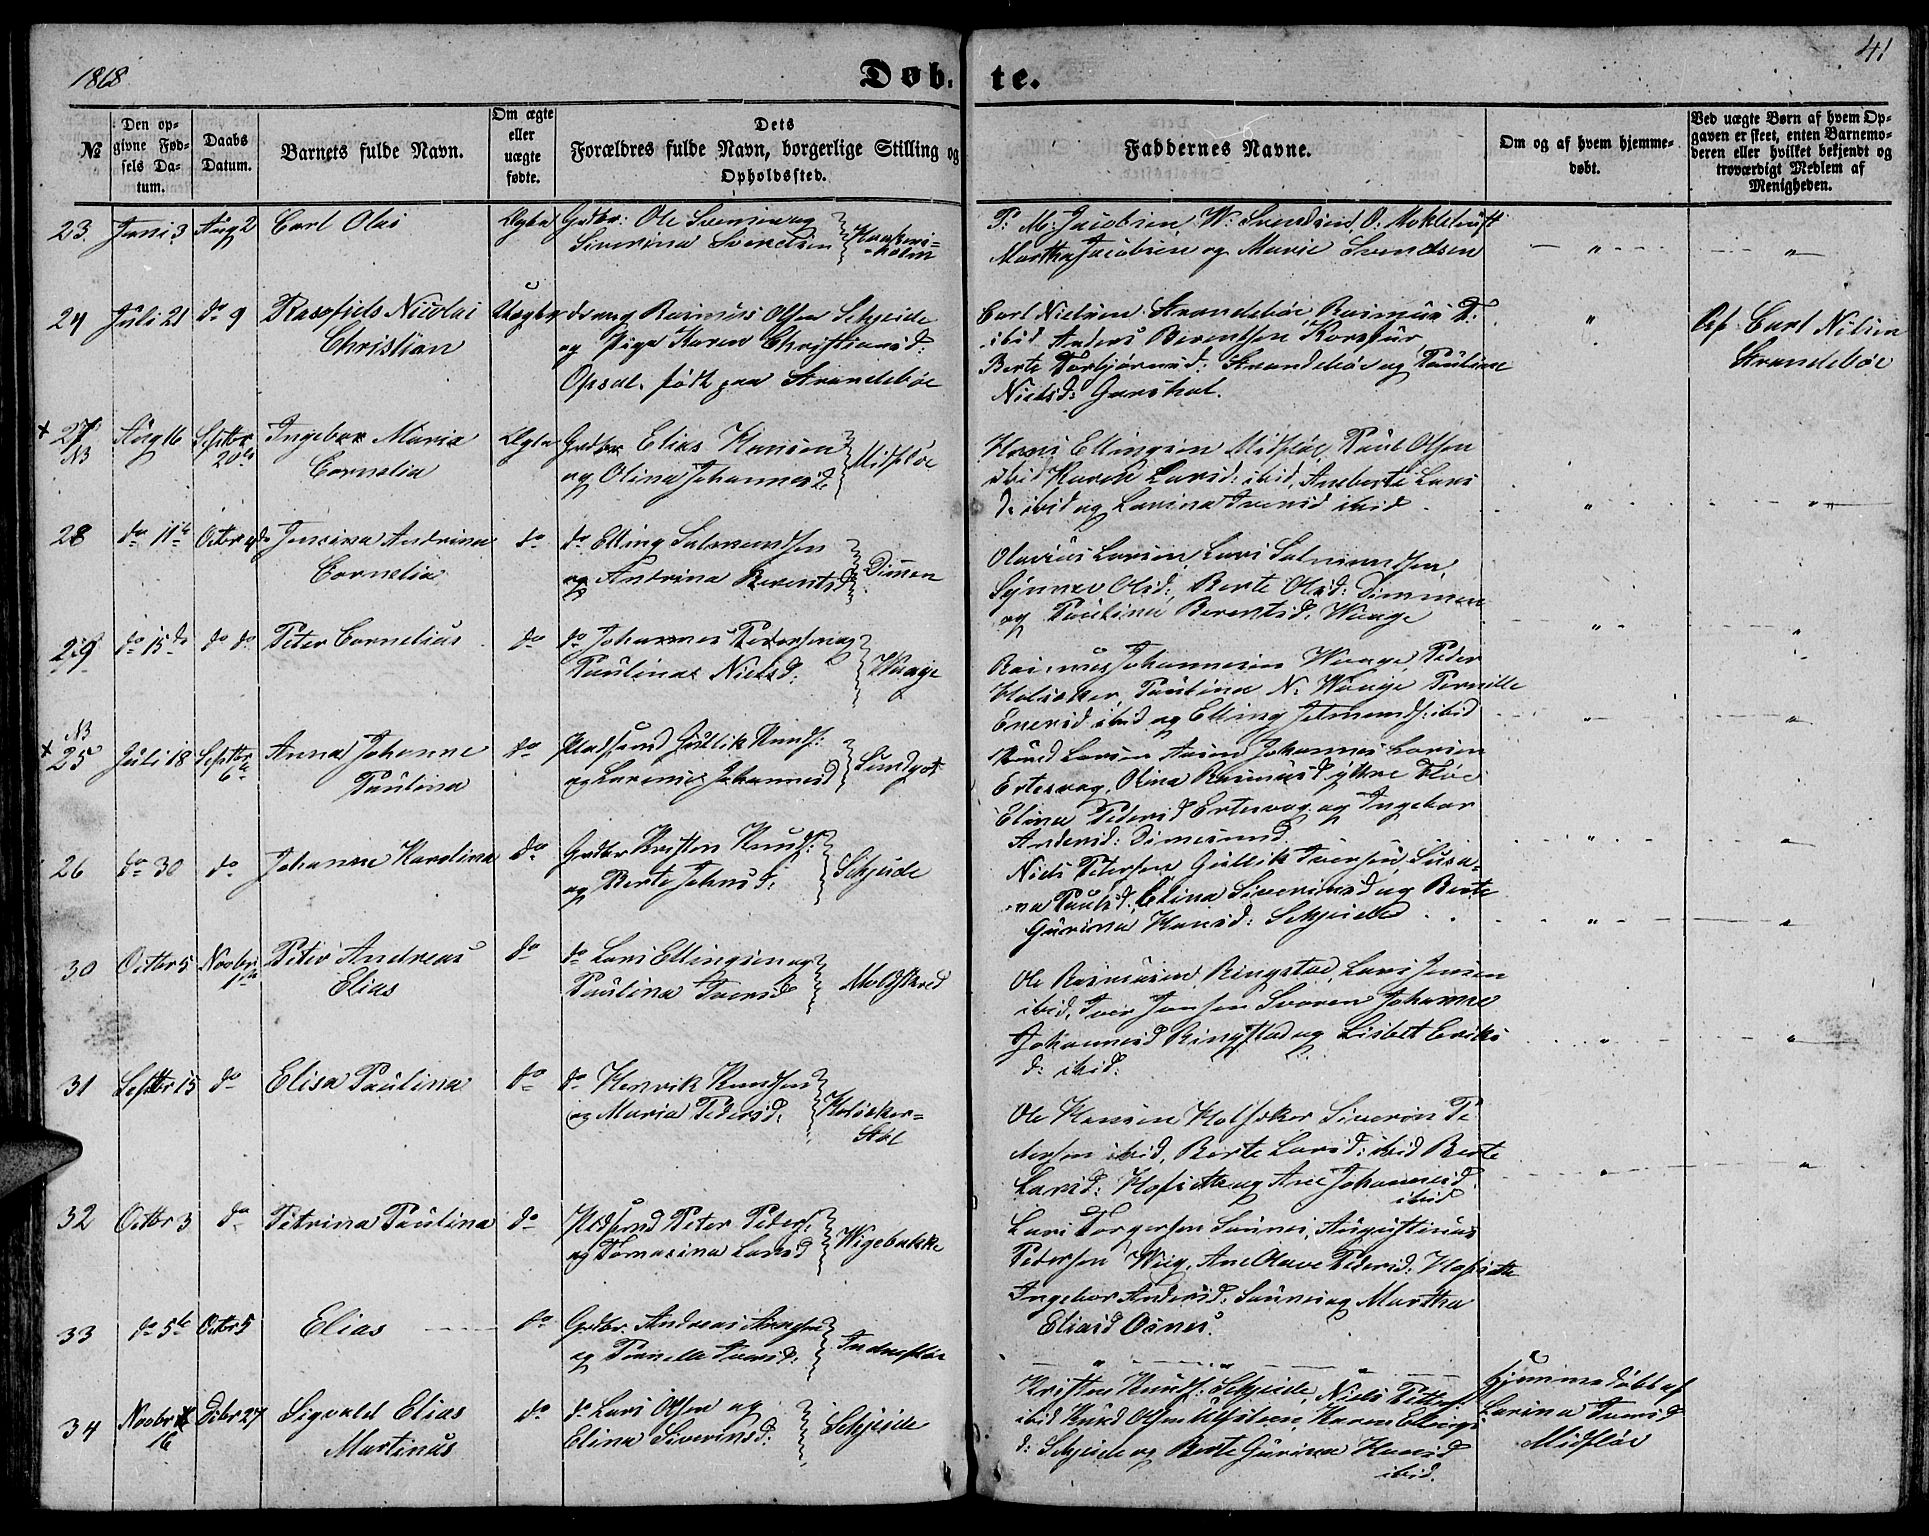 1868
Døb-
te.
41
№
Den op-
givne Fød-
sels Da-
tum.
Daabs
Datum.
Barnets fulde Navn.
Om ægte
eller
uægte
fødte.
Dets
Forældres fulde Navn, borgerlige Stilling og
Opholdssted.
Faddernes Navne.
Om og af hvem hjemme-
døbt.
Ved uægte Børn af hvem Op-
gaven er skeet, enten Barnemo-
deren eller hvilket bekjendt og
troværdigt Medlem af
Menigheden.
23. Juni 3 Aug 2 Carl Olai Ægte Grdbr: Ole Svenning
Siverina Svendsen
P: M: Jacobsen, W: Svendsen, O.
Martha Jacobsen og Marie Svendsen
24 Juli 21 do 9 Nicolai
Christian
Uægte Rasmus Olsen Schjeide
og Pige Karen Christiansd:
Opsal. født paa Strandebøe
Carl Nielsen Strandebøe, Rasmus
ibid Anders Berentsen
Berte Torbjørnsd: Strandebøe og Pauline
Nielsd: Garshol.
Opg. Carl Nilsen
Strandebøe
x 27 NB Aug 16 Septbr 20de Ingebor Maria
Cornelia
Ægte Grdbr Elias Hansen
og Olina Johannesd:
Midfløe
Hans Ellingsen Midfløe, Paul Olsen
ibid Karen Larsd: ibid, Aneberte Lars
d: ibid og Larina Iversd ibid
28 do 11te Octbr 4de Jensina Andrina
Cornelia
do do Elling Salmundsen
og Andrina Berentsd
Dimen
Olavius Larsen, Lars Salmundsen,
Synnev Olsd:, Berte Olsd: Dimmen
og Paulina Berentsd: Waage
29 do 15de do do Peter Cornelius do do Johannes Pedersen og
Paulina Nielsd:
Waage
Rasmus Johannesen Waage, Peder
Holsæker, Paulina N: Waage Pernille
Eversd ibid og Elling ibid
x NB 25 Juli 18 Septbr 6te Anna Johanne
Paulina
do Pladsmd Gullik Knuds:
og Johannesd
Knud Larsen Aasen, Johannes Larsen
Ertesvag, Olina Rasmusd ytre Fløe
Elina Pedersd Ertesvag og Ingebor
Andersd: Dimesund.
26 do 30 do Johanne Karolina do Grdbr Kristen Knuds:
og Berte Johnsd:
Schjeide
Niels Petersen, Gullik Iversen, Susa-
na Paulsd:, Elina Siverinsd og Berte
Gurina Hansd: Schjeide
30 Octbr 5 Novbr Peter Andreas
Elias
do do Lars Ellingsen og
Paulina Iversd
Moldskred
Ole Rasmusen, Ringstad, Lars Jensen
ibid, Iver Jensen Svoren, Johanne
Johannesd Ringstad og Lisbet Eriks
d: ibid:
31 Septbr 15 do Elisa Paulina do do Henrik Knudsen
og Maria Pedersd:
Holseker-
Støl
Ole Hansen Holseker, Siverin Pe
dersen ibid, Berte Larsd: ibid Berte
Larsd: Hofsæth og Ane Johannesd
ibid
32 Octbr 3 do Petrina Paulina do Peter Peders:
og Tomasina Larsd
Wigebakke
Lars Torgersen Saunes, Augustinus
Pedersen Wiig, Ane Olave Pedersd: Hofsæth
Ingebor Andersd: Saunes og Martha
Eliasd Osnes.
33 do 5te Octbr 5 Elias do Grdbr. Andreas
og Pernelle Iversd:
Indrefløe
34 Novbr 16 Decbr 27 Sigvald Elias
Martinus
do do Lars Olsen og
Elina Siverinsd:
Schjeide
Kristen Knuds: Schjeide, Niels Petters:
ibid Knud Olsen Karen Ellings
d: Schjeide og Berte Gurina Hansd
ibid.
Hjemmedøbt af
Larina Iversd
Midfløe